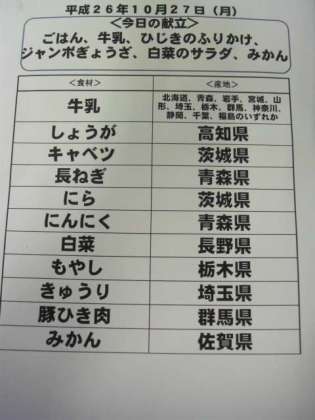 平成26年10月27日(月)
<今日の献立>
ごはん、牛乳、ひじきのふりかけ、
ジャンボぎょうざ、白菜のサラダ、みかん
<食材> <産地>
牛乳 北海道、青森、岩手、宮城、山
形、埼玉、栃木、群馬、神奈川、
静岡、千葉、福島のいずれか
しょうが 高知県
キャベツ 茨城県
長ねぎ 青森県
にら 茨城県
にんにく 青森県
白菜 長野県
もやし 栃木県
きゅうり 埼玉県
豚ひき肉 群馬県
みかん 佐賀県